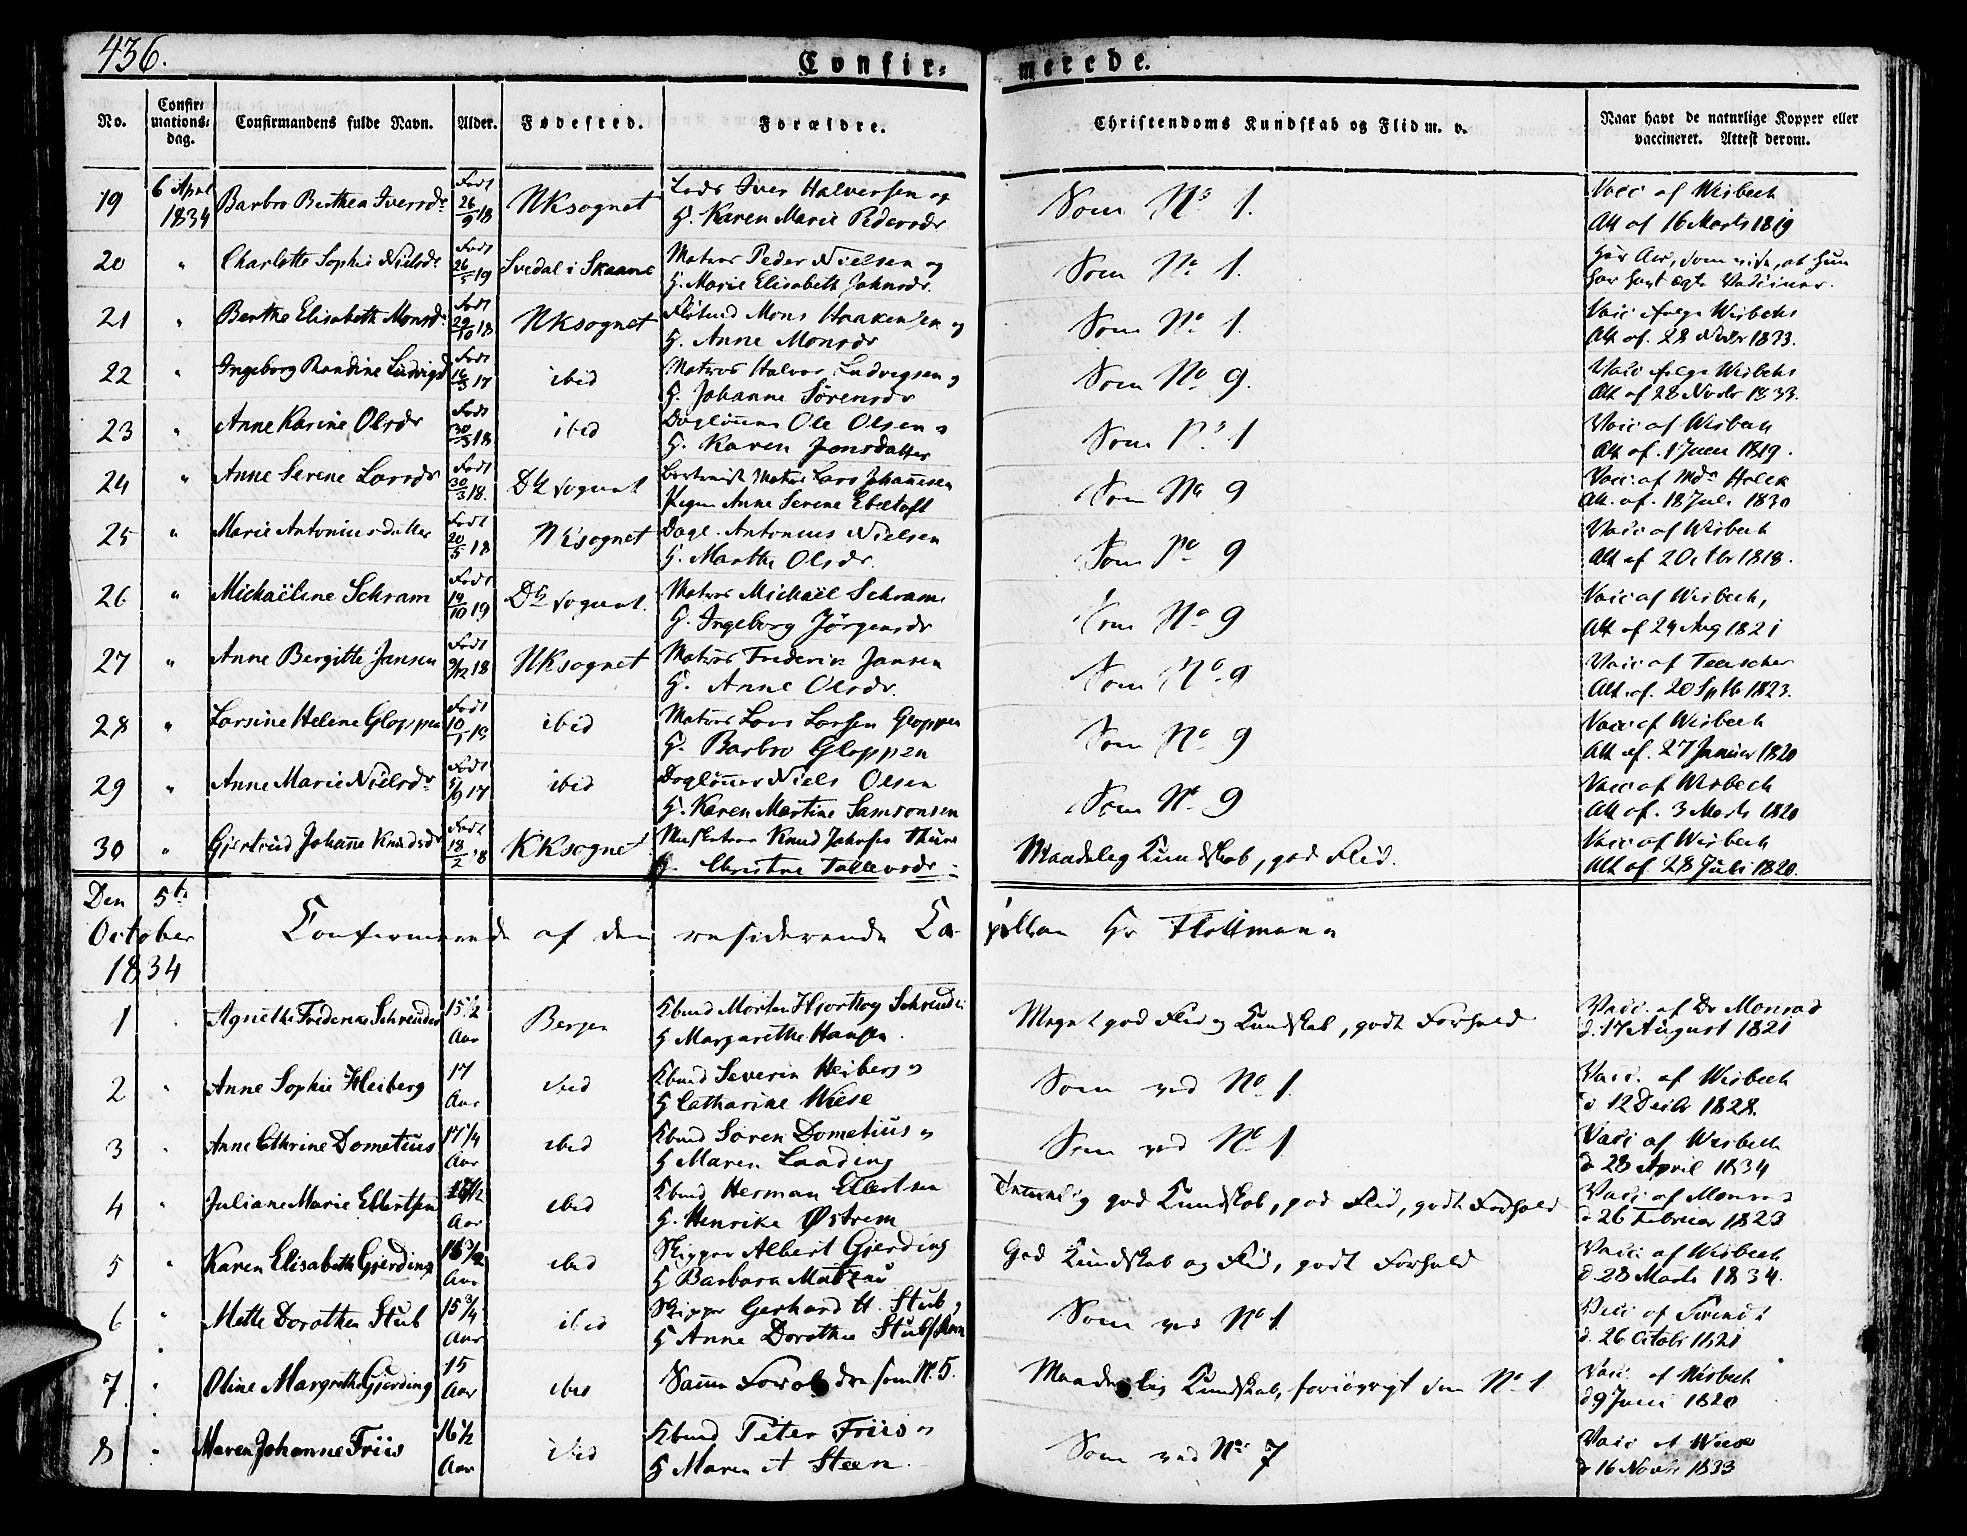 436.
Confir-
merede.
No.
Confir-
mations-
dag.
Confirmandens fulde Navn.
Alder.
Fødested.
Forældre.
Christendoms Kundskab og Flid m. v.
Naar havt de naturlige Kopper eller
vaccineret. Attest derom.
19 6 April 1834 Barbro Berthea Iversdr Født 26/9 18 NKsognet Iver Halversen og
G. Karen Marie Pedersdr
Som No 1.
Vacc af Wisbech
Att af 16 Marts 1819
20 " Charlotte Sophie Nielsdr Født 26/5 19 Svedal i Skaane Matros Peder Nielsen og
G. Marie Elisabeth Jahnsdr.
Som No 1.
har Ar, som vise, at hun
har havt ægte Vacciner.
21 " Berthe Elisabeth Monsdr Født 29/10 18 NKsognet Mons Haakensen og
G. Anne Monsdr
Som No 1.
Vacc følge Wisbechs
Att af. 28 Novbr 1833.
22 " Ingeborg Randine Ludvigsd Født 16/3 17 ibid Matros Halvor Ludvigsen og
G. Johanne Sørensdr
Som No 9.
Vacc følge Wisbechs
Att af 28 Novbr 1833.
23 " Anne Karine Olsdr Født 30/3 18 ibid Dagløner Ole Olsen og
G. Karen Jonsdatter
Som No 1
Vacc af Wisbech
Att af. 1 Juni 1819.
24 " Anne Serene Larsdr Født 30/3 18. Dk sognet Matros Lars Johannesen
Pigen Anne Serene Ebeltoft
Som No 9
Vacc. af Md. Holck
Att. af. 18 Juli 1830
25 " Marie Antoniusdatter Født 20/5 18 NKsognet Dagl. Antonius Nielsen
G. Marthe Olsdr.
Som No 9
Vacc af Wisbech
Att af 2 Octbr 1818.
26 " Michaëlene Schram Født 19/10 19 Dk sognet. Matros Michaël Schram
G. Ingeborg Jörgensdr
Som No 9
Vacc af Wisbech,
Att af 24 Aug 1821
27 " Anne Bergitte Jansen Født 9/12 18 NKsognet Matros Frederik Jansen
G. Anne Olsdr.
Som No 9
Vacc af Teuscher
Att. af. 20 Sptb 1823.
28 " Larsine Helene Gloppen Født 10/1 19 ibid Matros Lars Larsen Gloppen
G. Barbro Gloppen
Som No 9
Vacc af Wisbech
Att af. 27 Januar 1820
29 " Anne Marie Nielsdr Født 5/9 17 ibid Dagløner Niels Olsen
G. Karen Martine Samsonsen
Som No 9
Vacc af Wisbech
Att af. 3 Marts 1820
30 " Gjertrud Johanne Knudsdr Født 18/2 18 KKsognet Musketeer Knud
G. Christine Tollevsdr
Maadelig Kundskab, god Flid.
Vacc af Wisbech
Att af. 28 Juli 1820.
Den 5te
October
1834
Confirmerede af den residerende Ca-
pellan Hr Flottmann
1 Agnethe Frederikke Schreuder 15 1/2 Aar Bergen Kbmd Morten Hjorthøy Schreuder
G Margarethe Hansen.
Meget god Flid og Kundskab, godt Forhold
Vacc. af Dr Monrad
d. 17 August 1821
2 " Anne Sophie Heiberg 17 Aar ibid Kbmd Severin Heiberg og
G Catharine Wiese
Som ved No 1.
Vacc. af Wisbech
d 12 Decbr 1828.
3 " Anne Cathrine Dometius 17 1/4 Aar ibid Kbmd Søren Dometius og
G Maren Laading
Som ved No 1.
Vacc af Wisbech
d. 28 April 1834
4 " Juliane Marie Ellertsen Aar ibid Kbmd Herman Ellertsen
G. Henrike Østrem
Temmelig god Kundskab, god Flid, godt Forhold
Vacc af Monrad
d. 26 Februar 1823
5 " Karen Elisabeth Gjerding Aar ibid Skipper Albert Gjerding
G Barbara Matzau
God Kundskab og Flid, godt Forhold
Vacc af Wisbech
d. 28 Marts 1834.
6 " Mette Dorothea Stub 15 3/4 Aar ibid Skipper Gerhard H. Stub og
G Anne Dorothea
Som ved No 1.
Vacc af
d. 26 Octob 1821
7 " Oline Margrethe Gjerding 15 Aar ibid Samme Forældre som No. 5.
Maadelig Kundskab, forøvrigt som No 1.
Vacc. af Wisbech
d 9 Juni 1820
8 " Maren Johanne Friis 16 1/2 Aar ibid Kbmd Peter Friis og
G Maren A Steen.
Som ved No 7
Vacc af Wiese
d 16 Novbr 1833